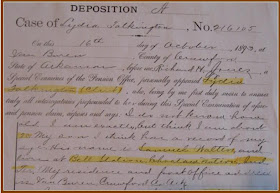 DEPOSITION A
Case of Lydia Talkington, No. 216,105
On this 16th day of October, 1893, at
Van Buren County of Crawford
State of Arkansas, before me, Richard H.
Special Examiner of the Pension Office, personally appeared Lydia
Talkington, who, being by me first duly sworn to answer
truly all interrogatories propounded to her during this Special Examination of afore-
said pension claim, deposes and says: I do not know how
old I am exactly, but think I am about
My son I think has a record of my
age. His name is Samuel and
lives at Bell Station, Cherokee Nation, Ind
Ty. My residence and post office address
is Van Buren Crawford Co.